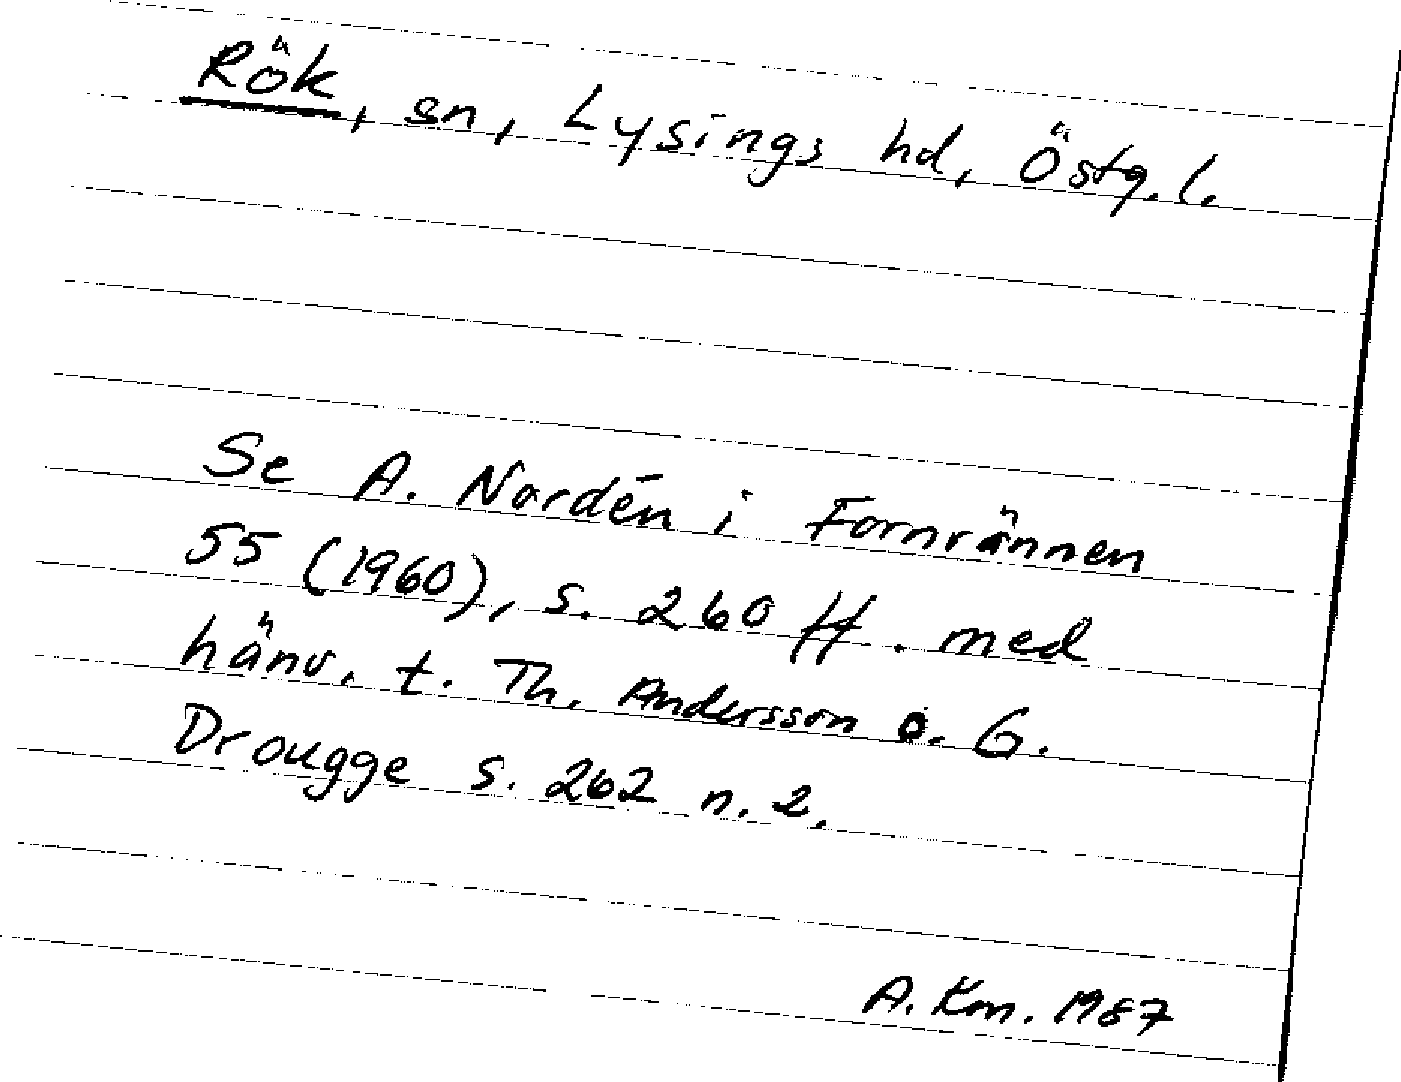 Rök, sn, Lysings hd, Östg.l.
Se A. Nordén i Fornvännen
55 (1960), s. 260 ff. med
hänv. t. Th. Andersson o. G.
Drougge s. 262 n. 2.
A. Km. 1987